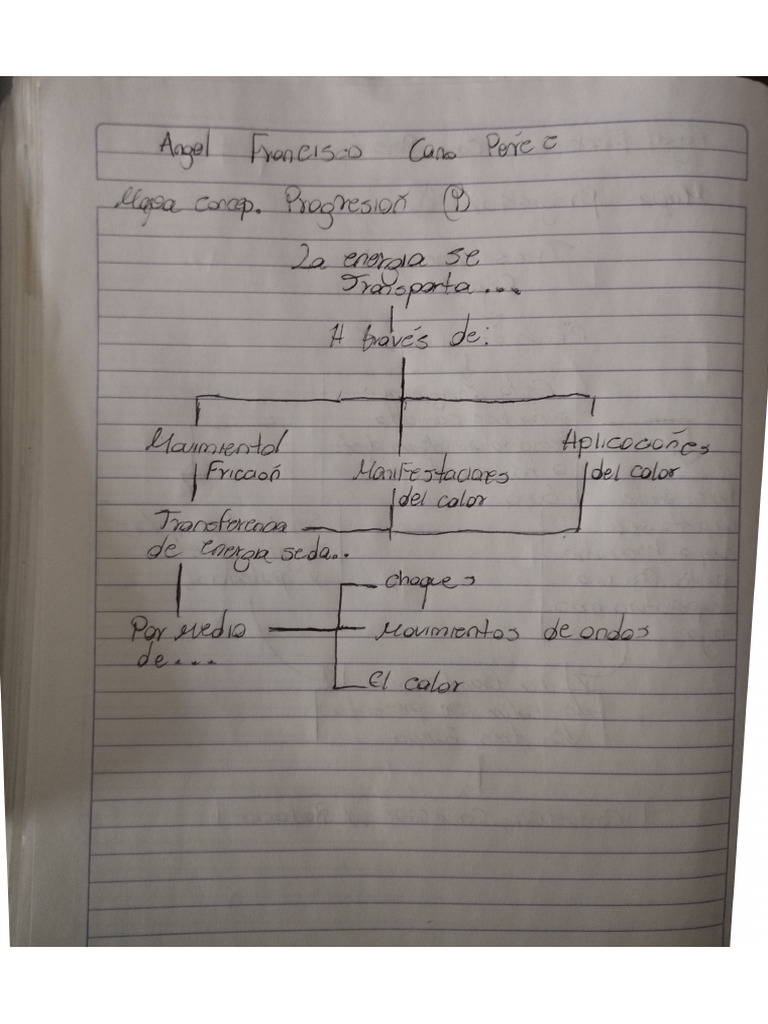 Angel Francisco Cano Pérez
Mapa concep. Progresión (4)
La energia se
Transporta...
A través de:
Movimiento/
Fricción
Manifestaciones
del calor
Aplicaciones
del calor
Transferencia
de energia seda..
Por medio
de...
choques
Movimientos de ondas
El calor